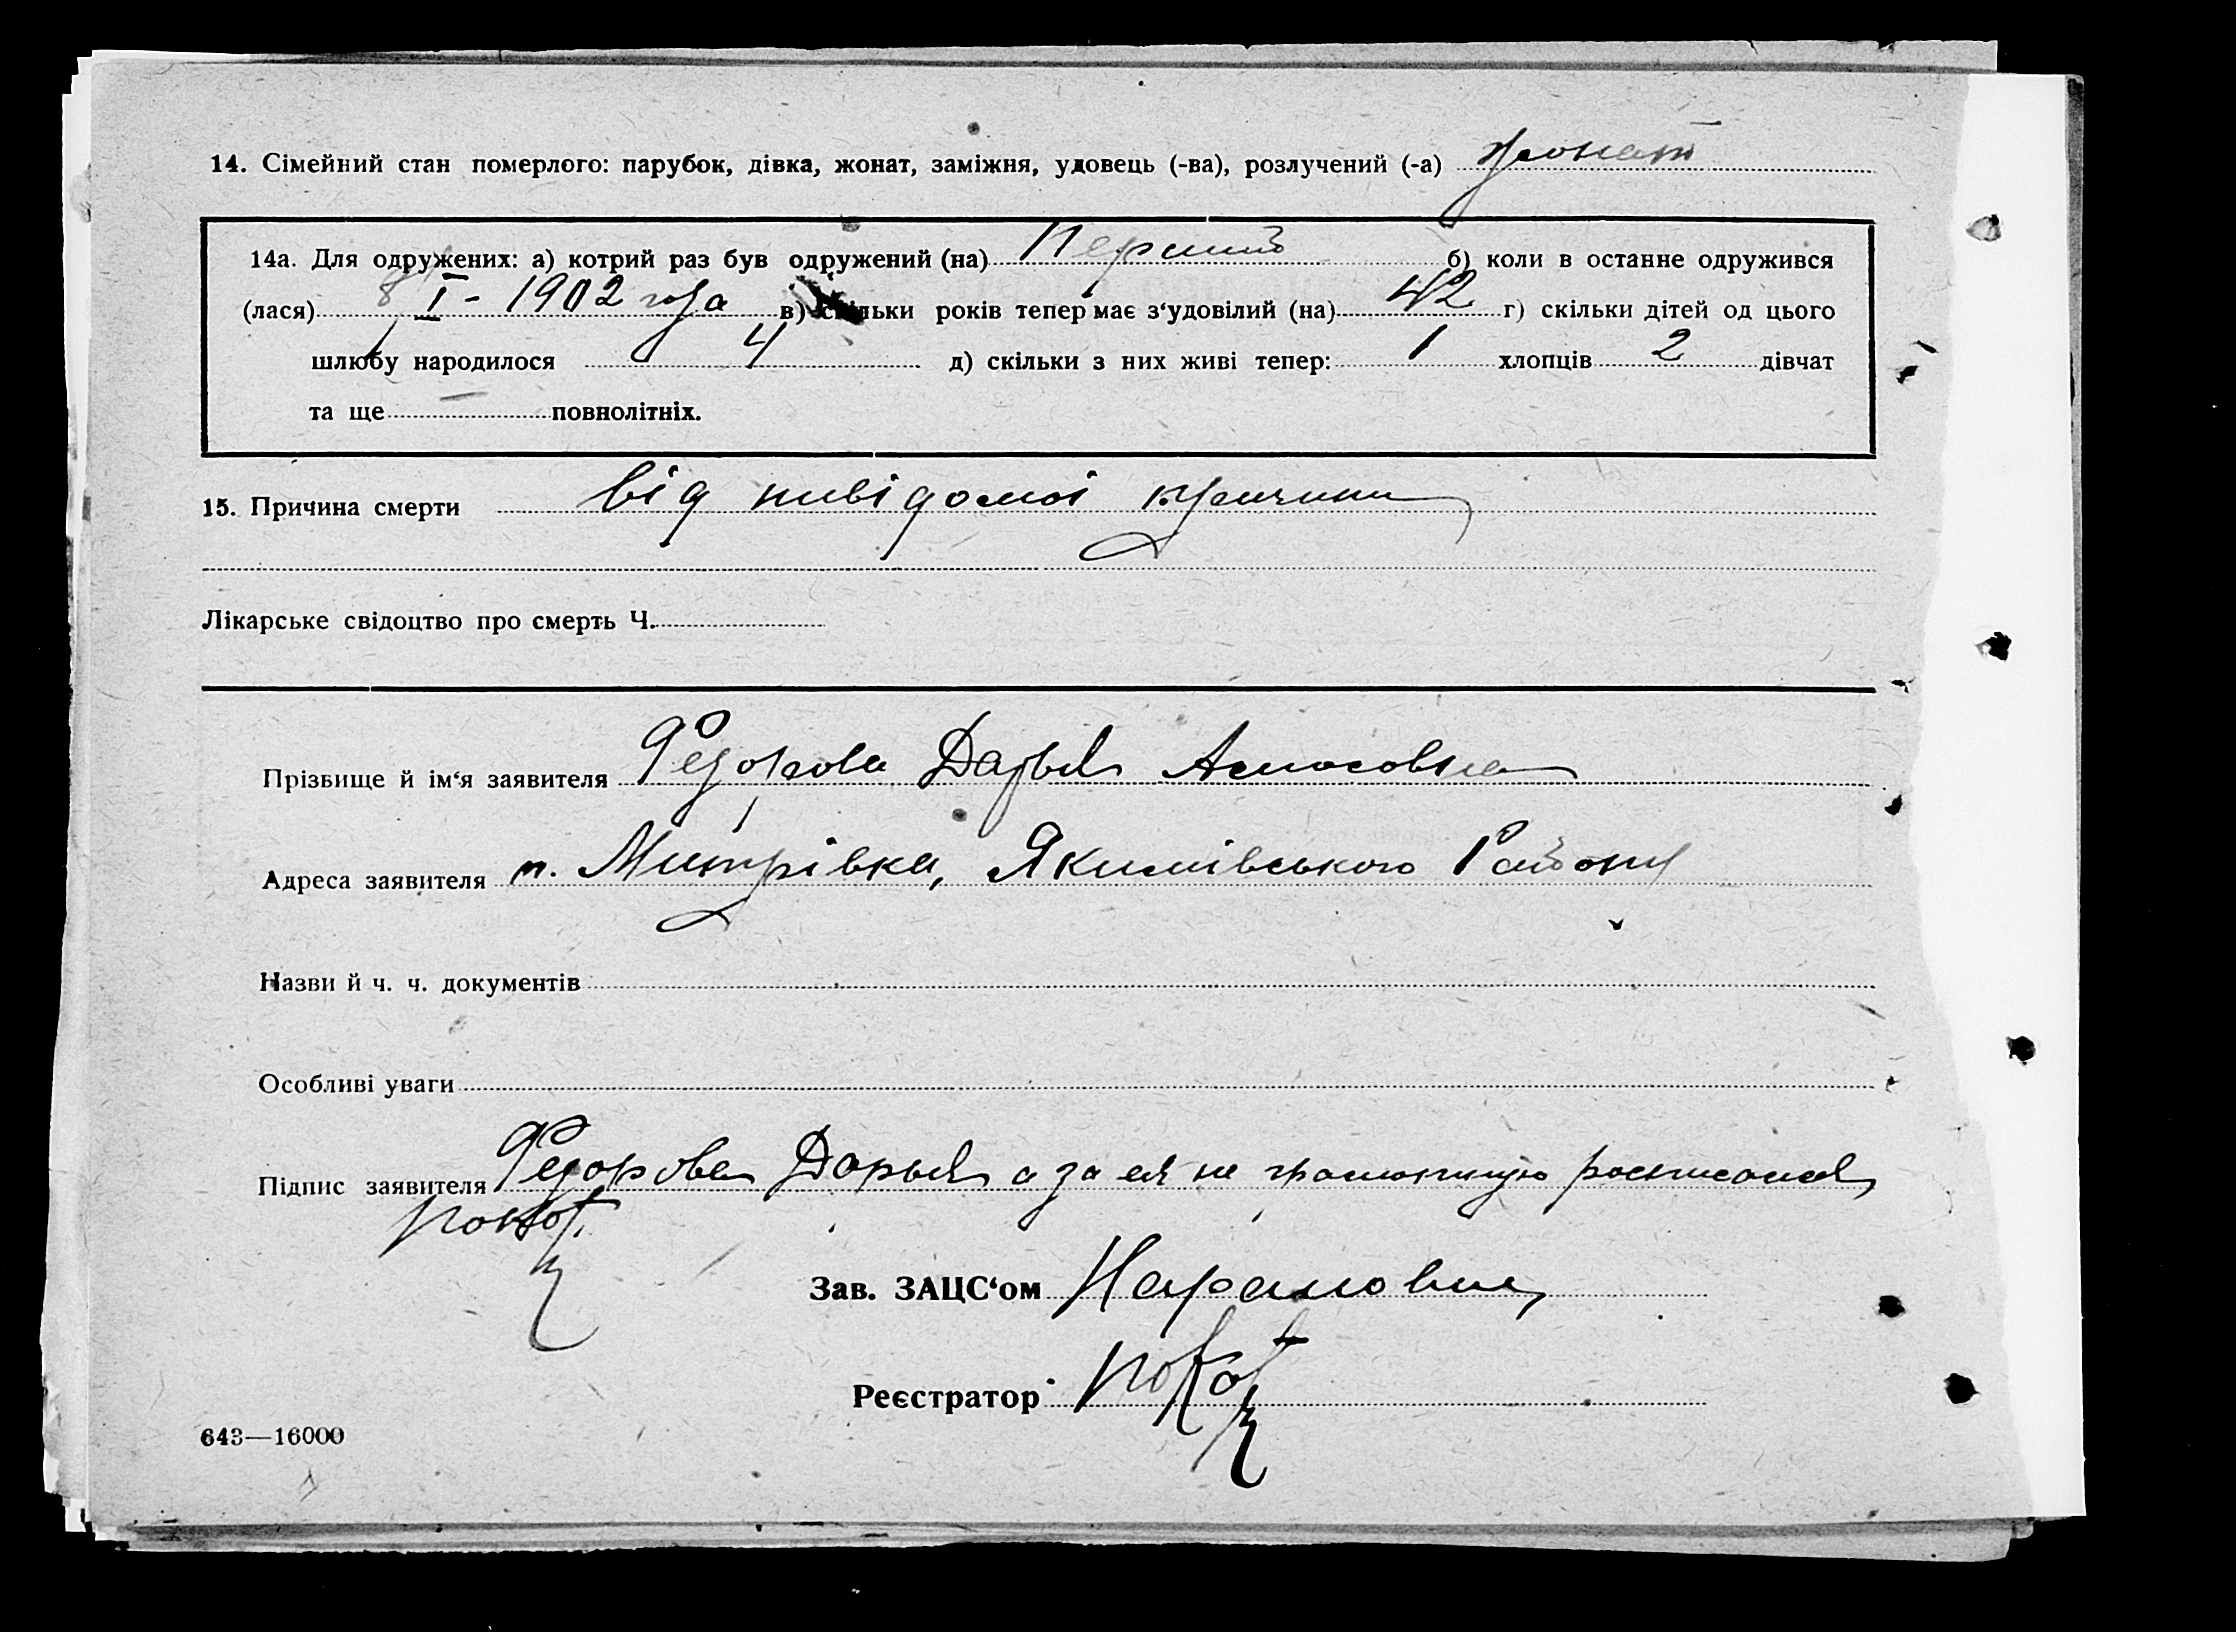 14. Сімейний стан померлого: парубок, дівка, жонат, заміжня, удовець (-ва), розлучений (-а) жонат
14а. Для одружених: а) котрий раз був одружений (на) Перший б) коли в останне одружився
(лася) 8/I - 1902 года в) скільки років тепер має з‘удовілий (на) 42 г) скільки дітей од цього
шлюбу народилося 4 д) скільки з них живі тепер: 1 хлопців 2 дівчат
та ще — повнолітніх.
15. Причина смерти від невідомоі причини
Лікарське свідоцтво про смерть Ч.
Прізвище й ім‘я заявителя Федорова Дарья
Адреса заявителя п. Митрівка, Якимівського Району
Назви й ч. ч. документів
Особливі уваги
Підпис заявителя Федорова Дарья а за ея не грамотную росписался
Зав. ЗАЦС‘ом
Реєстратор
643—16000